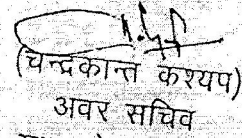 (चन्द्रकान्त कश्यप)
अवर सचिव